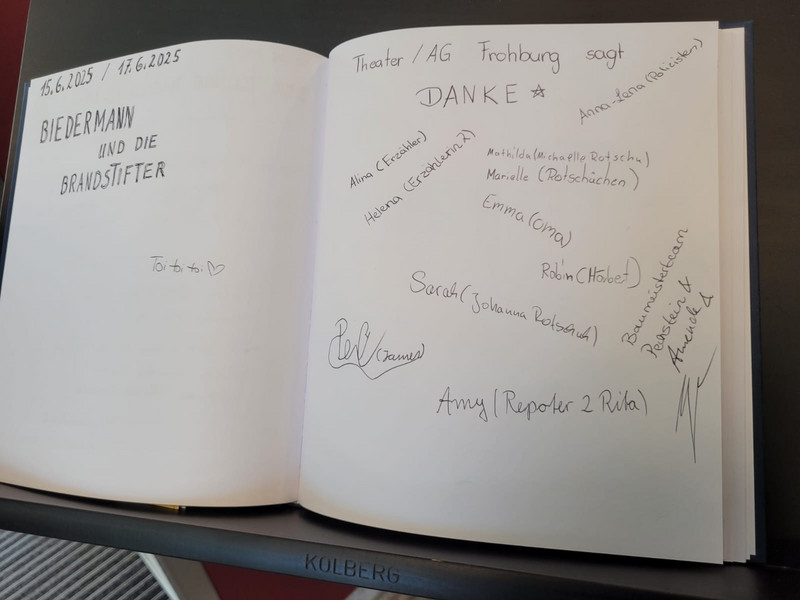 15.6.2025 / 17.6.2025
BIEDERMANN
UND DIE
BRANDSTIFTER
Toi toi toi
Theater / AG Frohburg sagt
DANKE
Anna-Lena (Policisten)
Alina (Erzähler)
Helena (Erzählerin 2)
Mathilda (Michaelle Rotschu)
Marielle (Rotschüchen)
Emma (Oma)
Robin (Hörbet)
Sarah (Johanna Rotschuh)
(James)
Baumeisterteam
&
&
Amy (Repoter 2 Rita)
KOLBERG